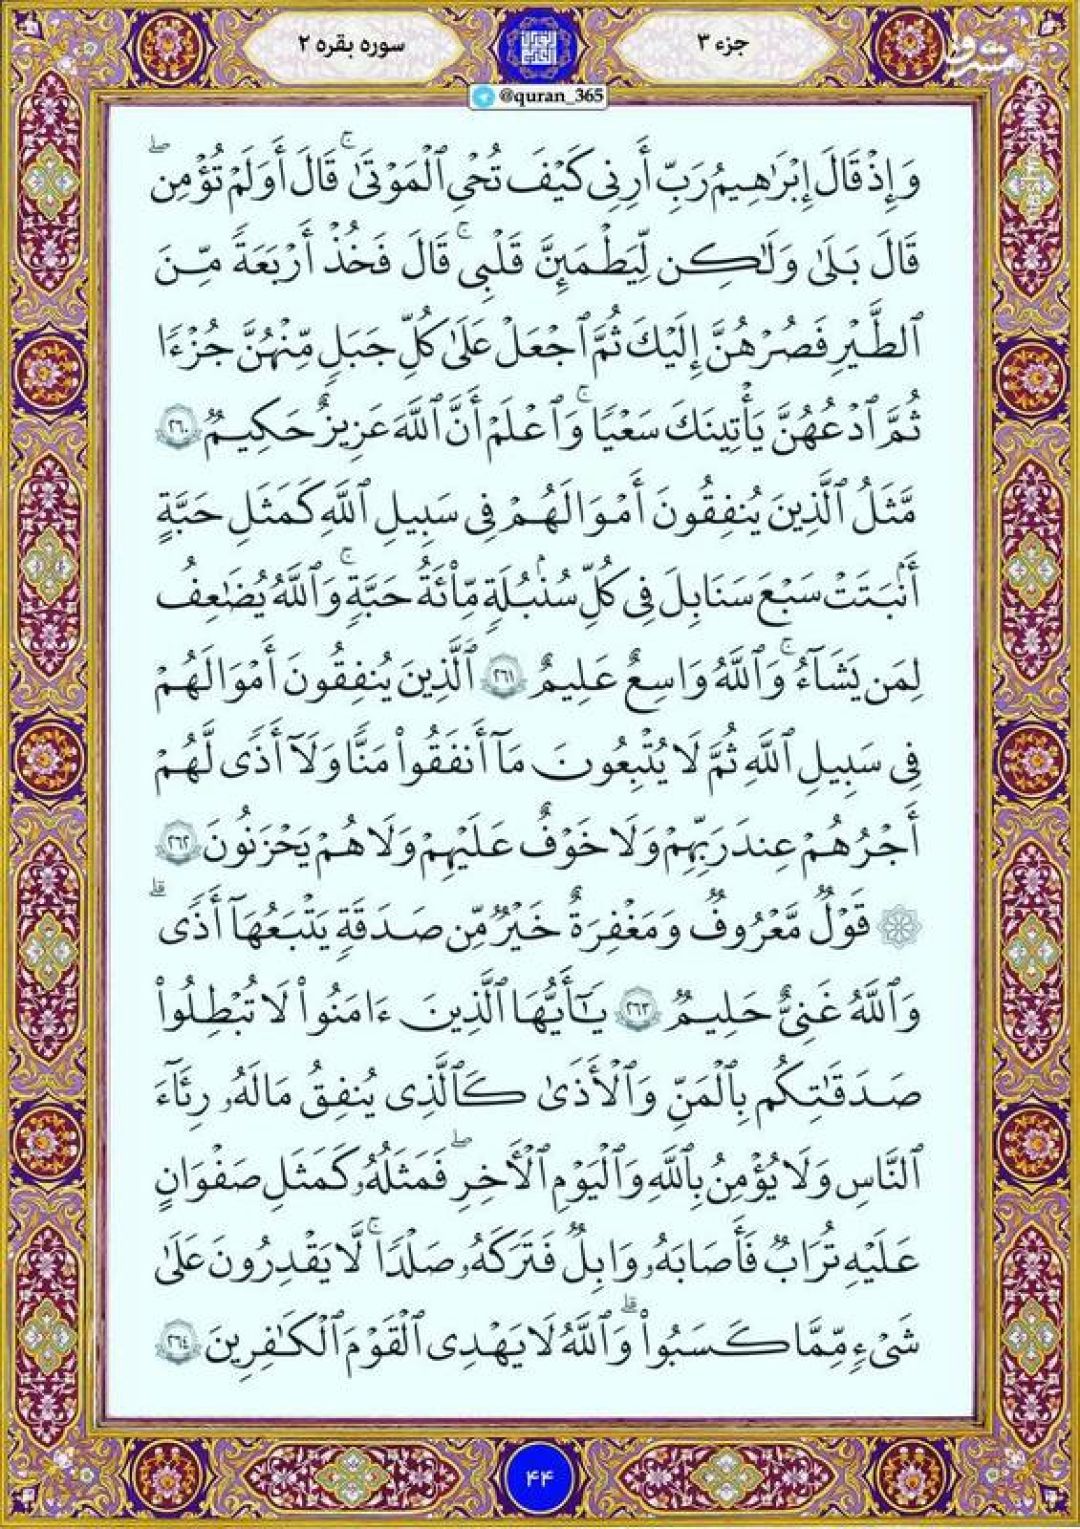 جزء ۳
سوره بقره ۲
@quran_365
وَإِذْ قَالَ إِبْرَٰهِيمُ رَبِّ أَرِنِى كَيْفَ تُحْىِ ٱلْمَوْتَىٰ ۖ قَالَ أَوَلَمْ تُؤْمِن ۖ
قَالَ بَلَىٰ وَلَٰكِن لِّيَطْمَئِنَّ قَلْبِى ۖ قَالَ فَخُذْ أَرْبَعَةً مِّنَ
ٱلطَّيْرِ فَصُرْهُنَّ إِلَيْكَ ثُمَّ ٱجْعَلْ عَلَىٰ كُلِّ جَبَلٍ مِّنْهُنَّ جُزْءًا
ثُمَّ ٱدْعُهُنَّ يَأْتِينَكَ سَعْيًا ۚ وَٱعْلَمْ أَنَّ ٱللَّهَ عَزِيزٌ حَكِيمٌ ٢٦٠
مَّثَلُ ٱلَّذِينَ يُنفِقُونَ أَمْوَالَهُمْ فِى سَبِيلِ ٱللَّهِ كَمَثَلِ حَبَّةٍ
أَنۢبَتَتْ سَبْعَ سَنَابِلَ فِى كُلِّ سُنۢبُلَةٍ مِّا۟ئَةُ حَبَّةٍ ۗ وَٱللَّهُ يُضَٰعِفُ
لِمَن يَشَآءُ ۚ وَٱللَّهُ وَاسِعٌ عَلِيمٌ ٢٦١ ٱلَّذِينَ يُنفِقُونَ أَمْوَالَهُمْ
فِى سَبِيلِ ٱللَّهِ ثُمَّ لَا يُتْبِعُونَ مَآ أَنفَقُوا۟ مَنًّا وَلَآ أَذًى لَّهُمْ
أَجْرُهُمْ عِندَ رَبِّهِمْ وَلَا خَوْفٌ عَلَيْهِمْ وَلَا هُمْ يَحْزَنُونَ ٢٦٢
۞ قَوْلٌ مَّعْرُوفٌ وَمَغْفِرَةٌ خَيْرٌ مِّن صَدَقَةٍ يَتْبَعُهَآ أَذًى ۗ
وَٱللَّهُ غَنِىٌّ حَلِيمٌ ٢٦٣ يَٰٓأَيُّهَا ٱلَّذِينَ ءَامَنُوا۟ لَا تُبْطِلُوا۟
صَدَقَٰتِكُم بِٱلْمَنِّ وَٱلْأَذَىٰ كَٱلَّذِى يُنفِقُ مَالَهُۥ رِئَآءَ
ٱلنَّاسِ وَلَا يُؤْمِنُ بِٱللَّهِ وَٱلْيَوْمِ ٱلْأَخِرِ ۖ فَمَثَلُهُۥ كَمَثَلِ صَفْوَانٍ
عَلَيْهِ تُرَابٌ فَأَصَابَهُۥ وَابِلٌ فَتَرَكَهُۥ صَلْدًا ۖ لَّا يَقْدِرُونَ عَلَىٰ
شَىْءٍ مِّمَّا كَسَبُوا۟ ۗ وَٱللَّهُ لَا يَهْدِى ٱلْقَوْمَ ٱلْكَٰفِرِينَ ٢٦٤
۴۴